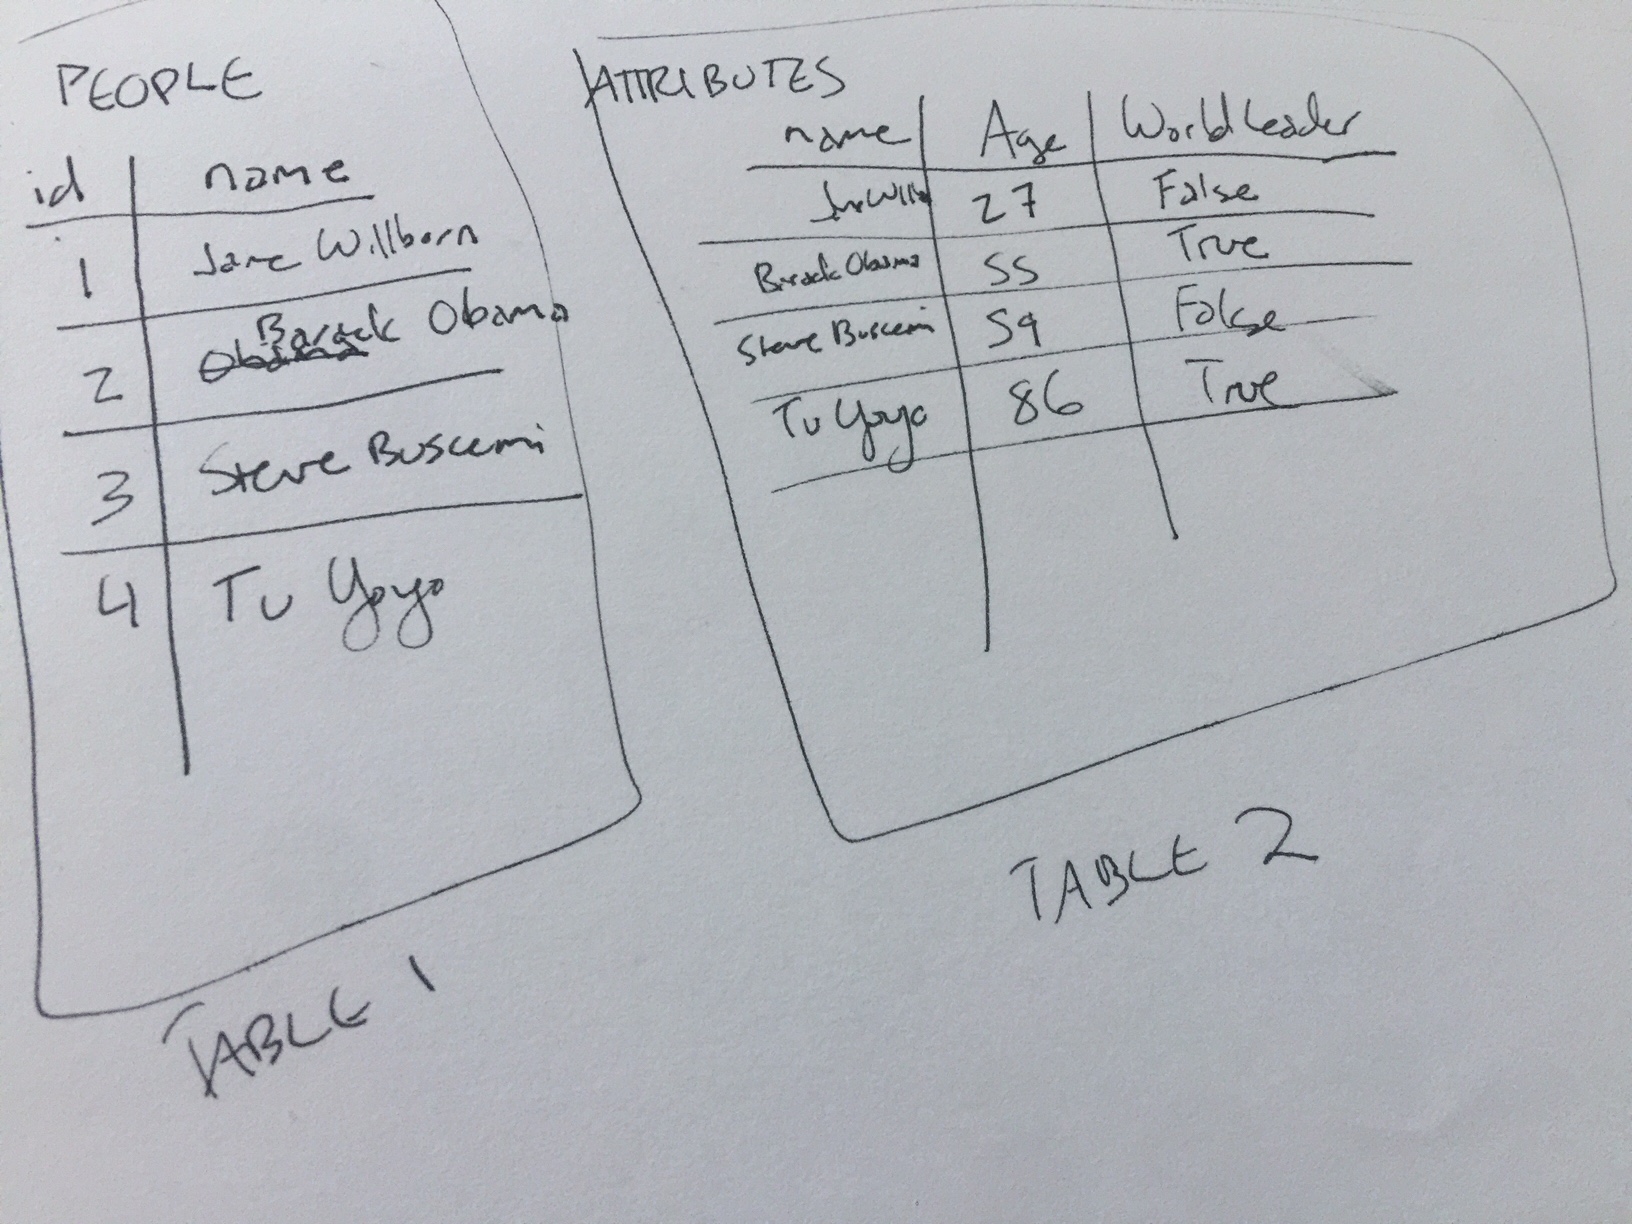 PEOPLE
id name
1 Jane Willborn
2 Barack Obama
3 Steve Buscemi
4 Tu Yoyo
TABLE 1
ATTRIBUTES
name Age World Leader
27 False
Barack Obama 55 True
Steve Buscemi 59 False
Tu Yoyo 86 True
TABLE 2